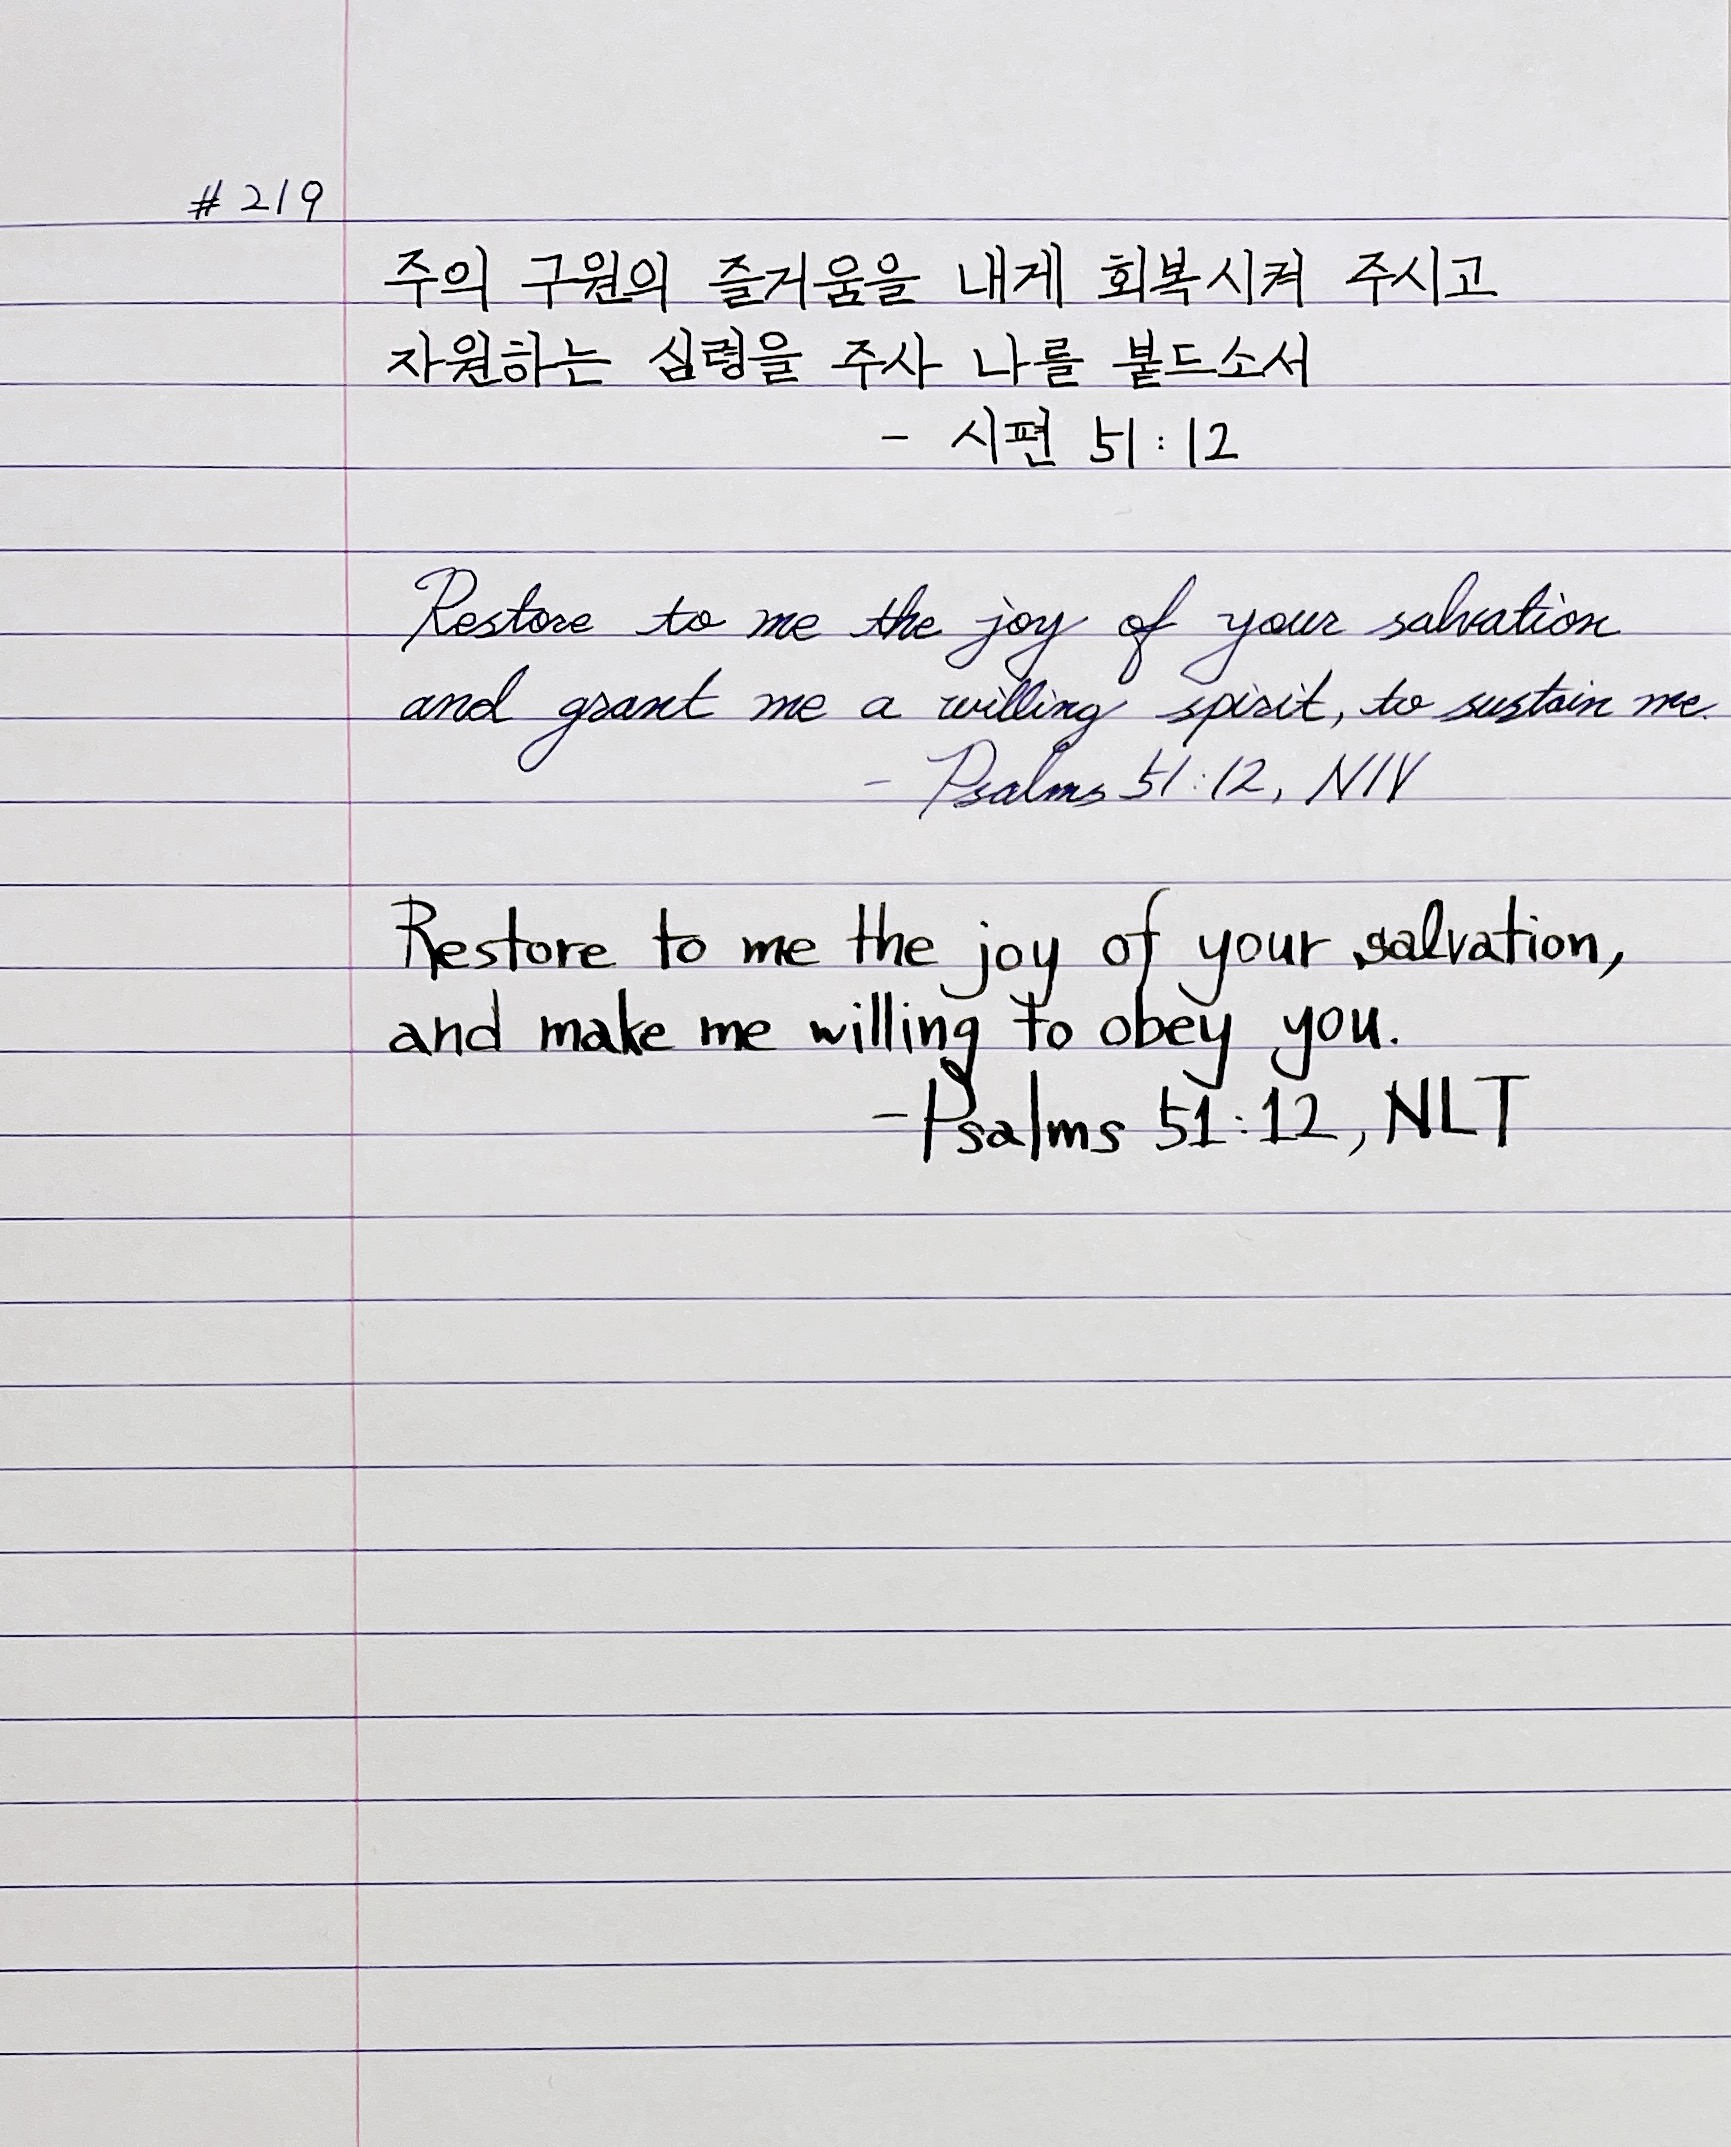 #219
주의 구원의 즐거움을 내게 회복시켜 주시고
자원하는 심령을 주사 나를 붙드소서
- 시편 51:12
Restore to me the joy of your salvation
and grant me a willing spirit, to sustain me.
- Psalms 51:12, NIV
Restore to me the joy of your salvation,
and make me willing to obey you.
-Psalms 51:12, NLT